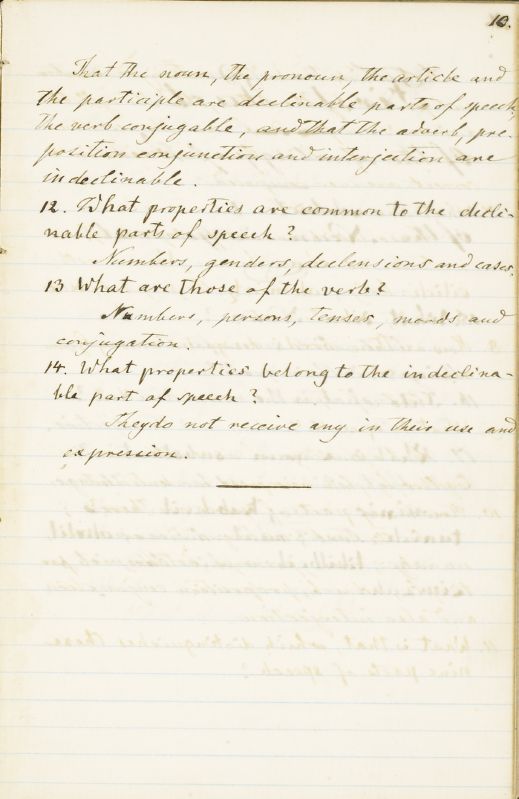 10.
That the noun, the pronoun, the article and
the participle are declinable parts of speech,
the verb conjugable, and that the adverb, pre-
position conjunction and interjection are
indeclinable.
12. What properties are common to the decli-
nable parts of speech?
Numbers, genders, declensions and cases.
13 What are those of the verb?
Numbers, persons, tenses, moods and
conjugation.
14. What properties belong to the indeclina-
ble part of speech?
They do not receive any in their use and
expression.